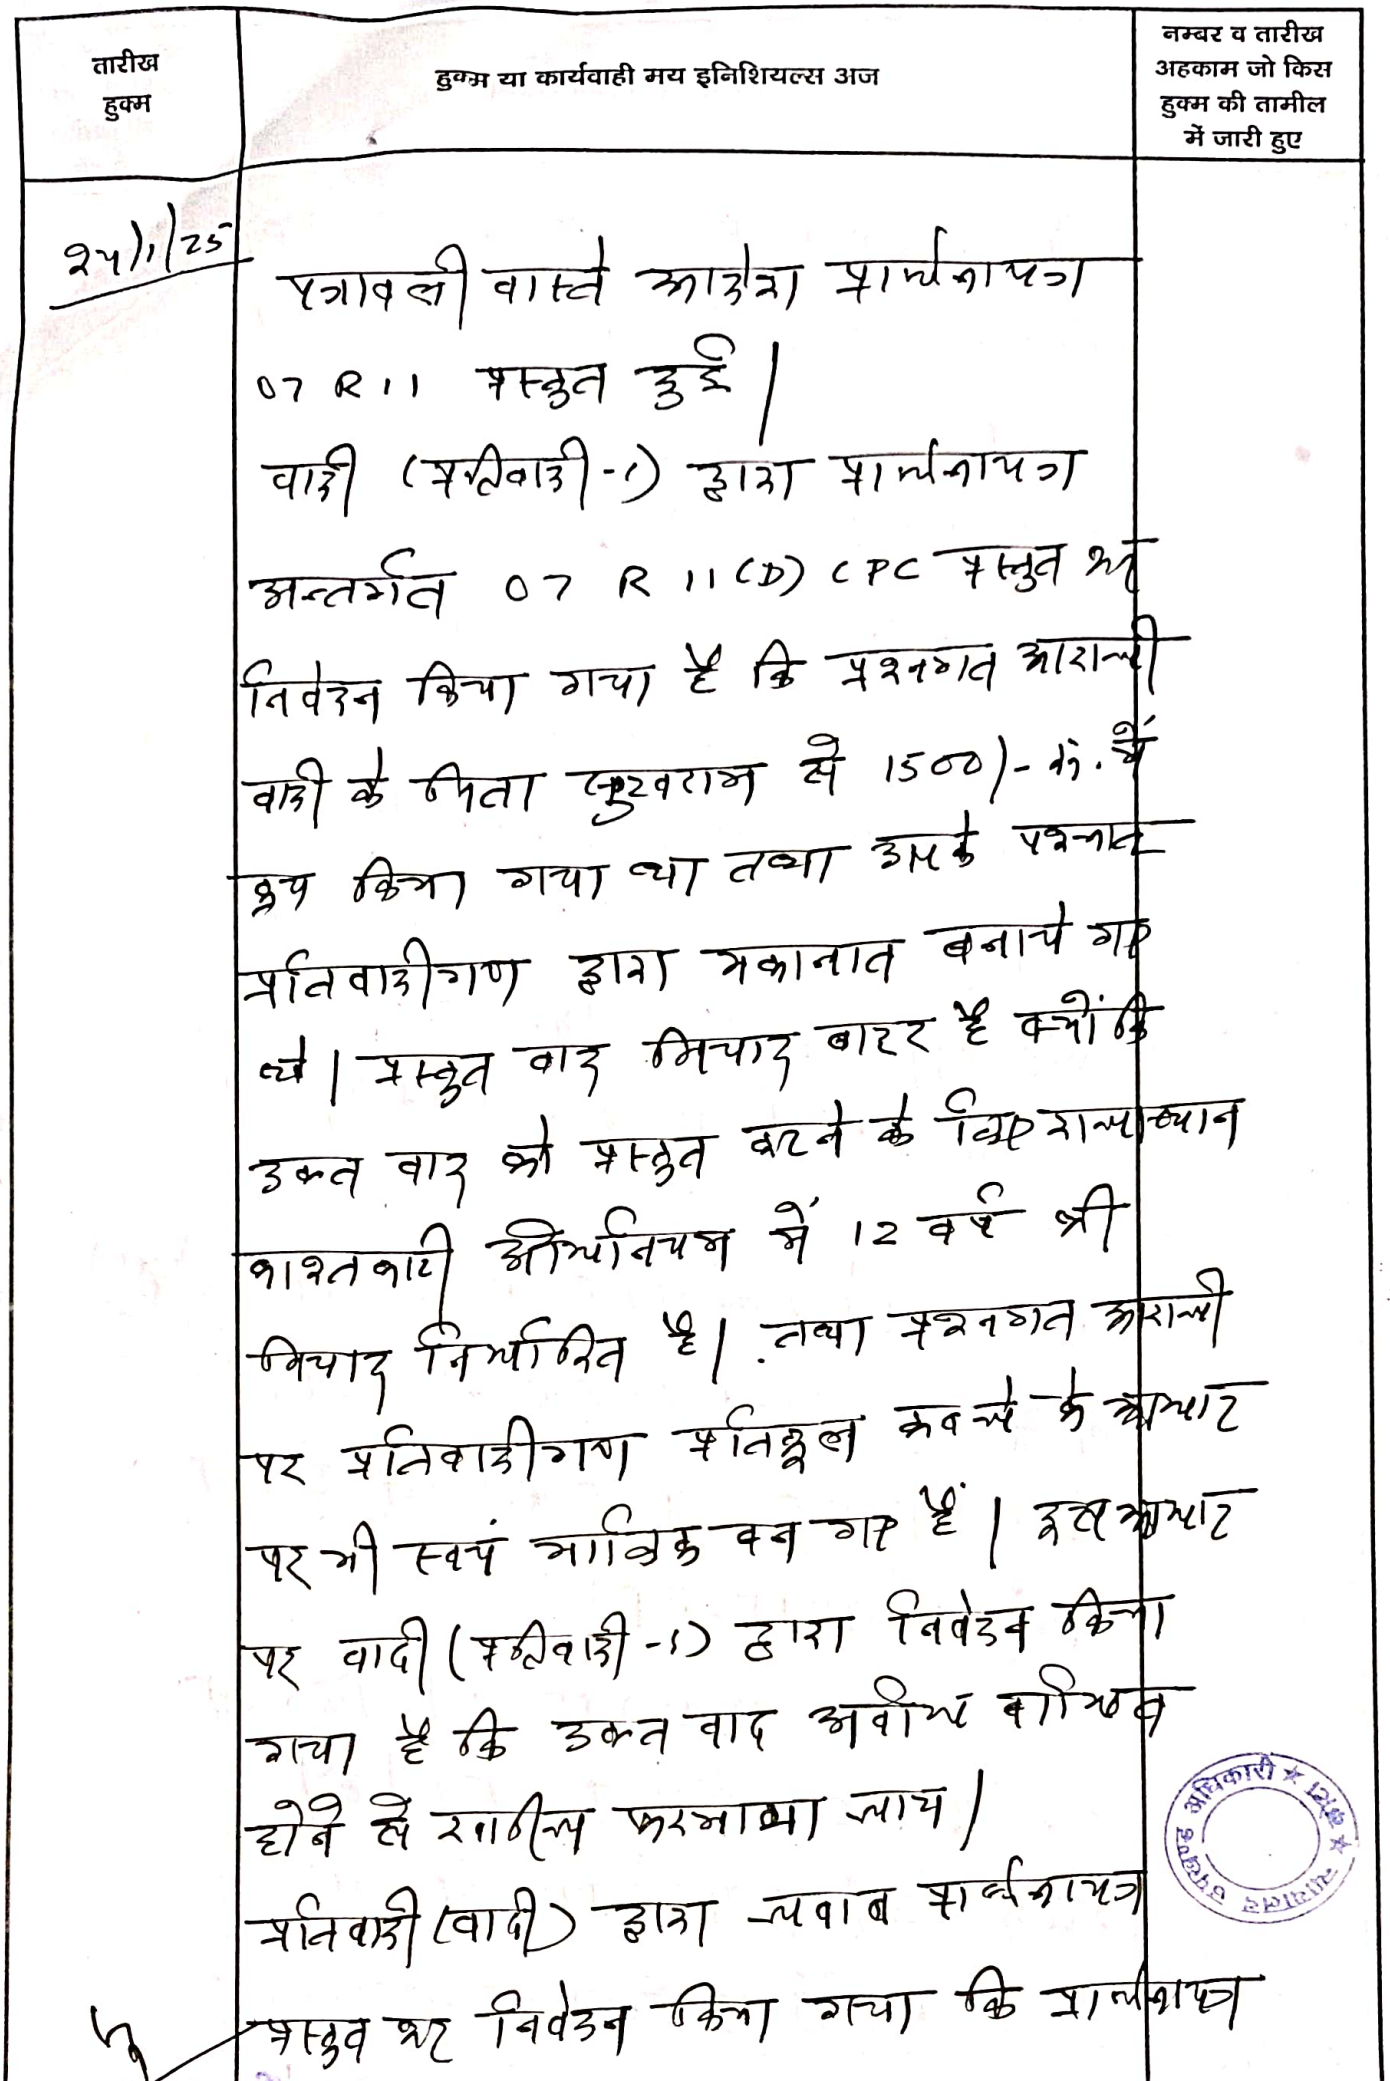 तारीख
हुक्म
हुक्म या कार्यवाही मय इनिशियल्स अज
नम्बर व तारीख
अहकाम जो किस
हुक्म की तामील
में जारी हुए
24/1/25
पत्रावली वास्ते आदेश प्रार्थनापत्र
07 R 11 प्रस्तुत हुई |
वादी (प्रतिवादी-1) द्वारा प्रार्थनापत्र
अन्तर्गत 07 R 11 (D) CPC प्रस्तुत कर
निवेदन किया गया है कि प्रश्नगत आराजी
वादी के पिता सुखराम से 1500/- रू. में
क्रय किया गया था तथा उसके पश्चात
प्रतिवादीगण द्वारा मकानात बनाये गए
थे | प्रस्तुत वाद मियाद बाहर है क्योंकि
उक्त वाद को प्रस्तुत करने के लिए राजस्थान
काश्तकारी अधिनियम में 12 वर्ष की
मियाद निर्धारित है | तथा प्रश्नगत आराजी
पर प्रतिवादीगण प्रतिकूल कब्जे के आधार
पर भी स्वयं मालिक बन गए हैं | इस आधार
पर वादी (प्रतिवादी-1) द्वारा निवेदन किया
गया है कि उक्त वाद अवधि बाधित
होने से खारीज फरमाया जाय |
प्रतिवादी (वादी) द्वारा जवाब प्रार्थनापत्र
प्रस्तुत कर निवेदन किया गया कि प्रार्थनापत्र
न्यायालय उपखण्ड अधिकारी